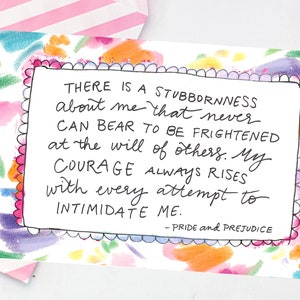 THERE IS A STUBBORNNESS
about me that never
CAN BEAR TO BE FRIGHTENED
at the will of others. My
COURAGE ALWAYS RISES
with every attempt to
INTIMIDATE ME.
- PRIDE and PREJUDICE